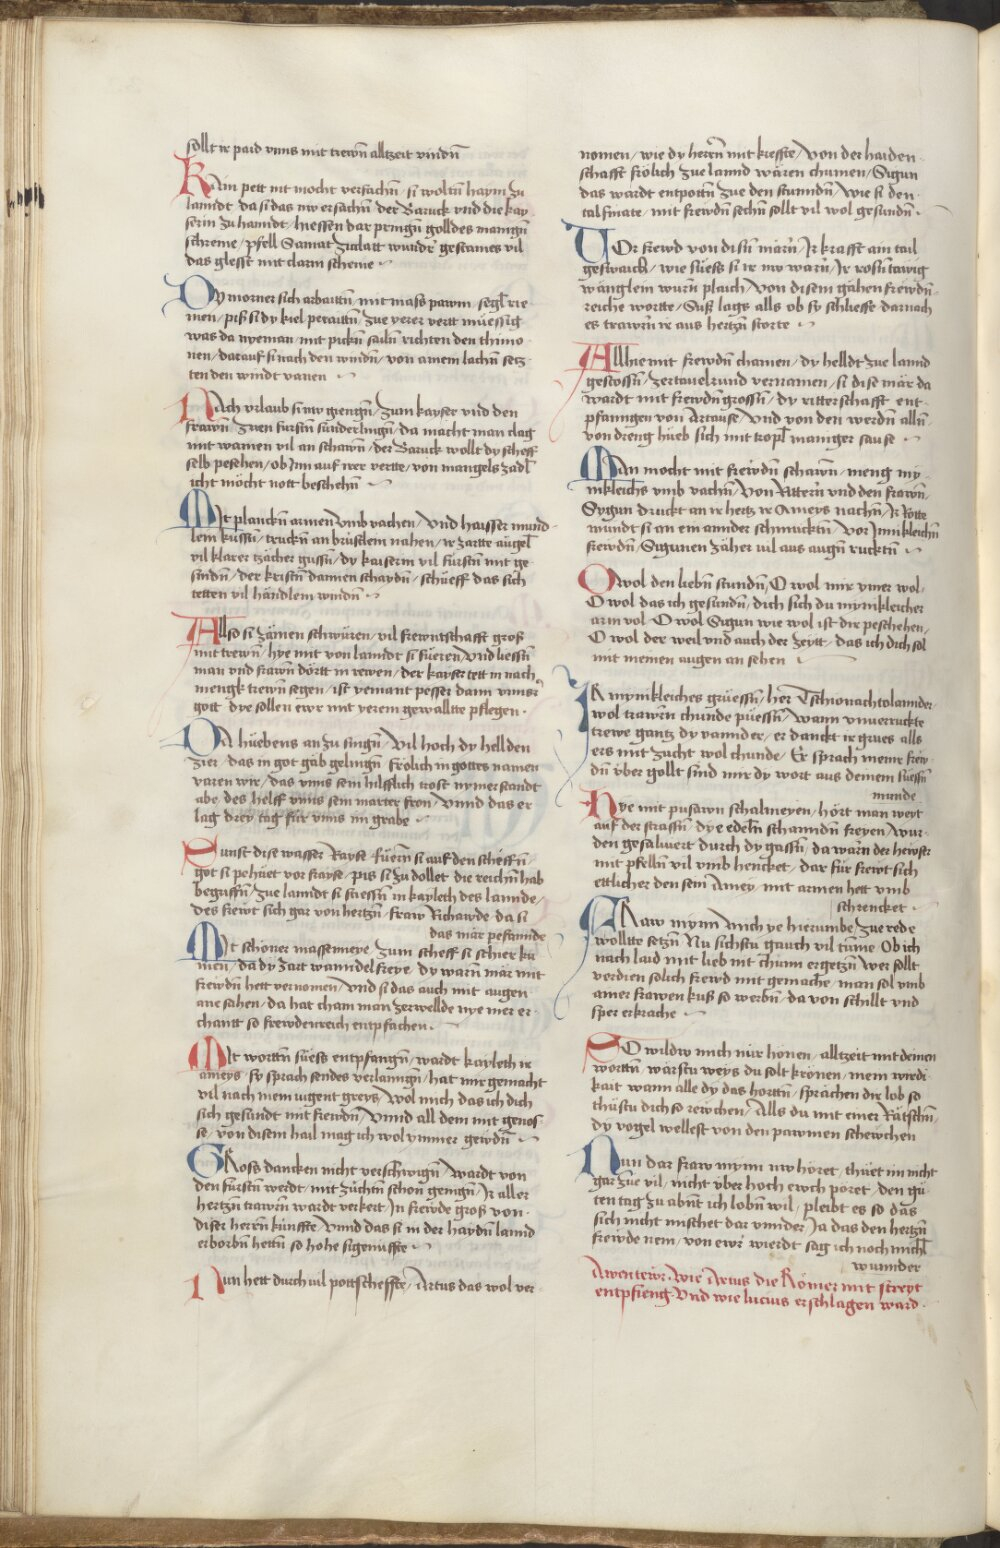 sollt ir paid vnns mit trewn̄ alltzeit vindn̄
KAin pett nit mocht versachn̄ / si woltn̄ haym zu
lanndt da si das nw ersachn̄ / der Baruck vnd die kay
serin zu hanndt / hiessen dar pringn̄ golldes manign̄
schreine / pfell Samat ziglatt wunder gestaines vil
das glesst mit clarm scheine
DY morner sich arbaittn̄ / mit mass pawm / segl rie
men / piss si dy kiel peraittn̄ / zue yerer vertt müessig
was da nyeman / mit pickn̄ sailn̄ richten den thimo
nen / darauf si nach den windn̄ / von ainem lachn̄ setz
ten den windt vanen
NAch vrlaub si nw giengn̄ / zum kayser vnd den
frawn̄ / zwen fursstn̄ sünderlingn̄ / da macht man clag
mit wainen vil an schawn̄ / der Baruck wollt dy scheff
selb pesehen / ob Inn auf irer vertte / von mangels zadl
icht möcht nott beschehn̄
MIt planckn̄ armen vmb vachen / vnd haisser mund
lein kussn̄ / truckn̄ an brüstlein nahen / ir zartte äugel
vil klarer tzäher gussn̄ / dy kaiserin vil fursstn̄ mit ge
sindn̄ / der kristn̄ damen schaydn̄ / schueff das sich
tetten vil händlein windn̄
Allso si zämen schwüren / vil frewntschafft groß
mit trewn̄ / hye mit von lanndt si fueren / vnd liessn̄
man vnd frawn̄ dörtt in rewen / der kayser tett in nach
mengk trewn̄ segen / ist yemant pesser dann vnnser
gott / dye sollen ewr mit yerem gewalltte pflegen
DA huebens an zu singn̄ / vil hoch dy hellden
zier / das in got gäb gelingn̄ / frölich in gottes namen
varen wir / das vnns sein hilfflich trost nymer standt
abe / des helff vnns sein marter fron / vnnd das er
lag drey tag für vnns im grabe
SUnst dise wasser Rayse / fuern̄ si auf den scheffn̄
got si pehüet vor frayse / piss si zu dollet die reichn̄ hab
begriffn̄ / zue lanndt si stiessn̄ in kaylech des lannde /
des frewt sich gar von hertzn̄ / fraw Richawde / da si
das mär pefannde
MIt schöner massemeye / zum scheff si schier ku
men / da dy zart wanndel freye / dy warn̄ mär mit
frewdn̄ hett vernomen / vnd si das auch mit augen
ane sahen / da hat cham man zerwellde nye mer er
chantt so frewdenreich entpfachen
MIt worttn̄ suess entpfangn̄ / wardt kaylech ir
ameys / sy sprach sendes verlanngn̄ / hat mir gemacht
vil nach mein iugent greys / wol mich das ich dich
sich gesundt mit frewdn̄ / vnnd all dein mit genos
se / von disem hail mag ich wol ymmer gewdn̄
GRoss dancken nicht verschwign̄ / wardt von
den furstn̄ werdt / mit züchtn̄ schon genign̄ / Ir aller
hertzn̄ trawrn̄ wardt verkert / In frewde groß von
diser herrn̄ künffte / vnnd das si in der haydn̄ lannd
erborbn̄ hettn̄ so hohe signufftte
Nun hett durch vil pottscheffte / Artus das wol ver
nomen / wie dy herrn̄ mit kreffte / von der haiden
schafft frölich zue lannd wären chumen / Sigun
das wardt entpottn̄ zue den stunndn̄ / wie si den
talfinate / mit frewdn̄ sechn̄ sollt vil wol gesundn̄
VOr frewd von disn̄ märn̄ / Ir krafft ain tail
geswaich / wie suess si ir nw warn̄ / Ir rosn̄ tawig
wänglein wurn̄ plaich / von disem gähen frewdn̄
reiche wortte / Suß lags alls ob sy schlieffe / darnach
es trawrn̄ ir aus hertzn̄ storte
Allhie mit frewdn̄ chamen / dy helldt zue lannd
gestossn̄ / zertauelrund vernamen / si dise mär da
wardt mit frewdn̄ grossn̄ / dy ritterschafft ent
pfanngen von Artause / vnd von den werdn̄ alln̄
von dreng hueb sich mit tropl maniger sause
MAn mocht mit frewdn̄ schawn̄ / meng my
nikleichs vmb vachn̄ / von Rittern̄ vnd den frawn̄
Sygun druckt an ir hertz ir Ameys nachn̄ / Ir Rotte
mundt si an ein annder schmucktn̄ / vor Innikleichn̄
frewdn̄ / Sigunen zäher vil aus augn̄ rucktn̄
O wol den liebn̄ stundn̄ / O wol mir ymer wol
O wol das ich gesundn̄ / dich sich du mynikleicher
arm vol / O wol Sigun wie wol ist dir peschehen /
O wol der weil vnd auch der zeytt / das ich dich sol
mit meinen augen an sehen
IR mynikleiches grüessn̄ / her Tschionachtolannder
wol trawrn̄ chunde püessn̄ / wann vnuerruckte
trewe gantz dy vannder / er danckt ir grues alls
ers mit zucht wol chunde / Er sprach meine frew
dn̄ vber gollt sind mir dy wort aus deinem suessn̄
munde
HYe mit pusawn schalmeyen / hört man weyt
auf der strassn̄ / dye edeln̄ schanndn̄ freyen / wur
den gesaluiert durch dy gassn̄ / da warn̄ der hewser
mit pfelln̄ vil vmb hencket / dar für frewt sich
ettlicher den sein Amey / mit armen hett vmb
schrencket
FRaw mynn mich ye hierumbe / zue rede
wolltte setzn̄ / Nu sichstu gauch vil tume / Ob ich
nach laid mit lieb nit chunn ergetzn̄ / wer sollt
verdien solich frewd mit gemache / man sol vmb
ainer frawen kuß so werbn̄ / da von schillt vnd
sper erkrache
SO wildw mich nür hönen / alltzeit mit deinen
worttn̄ / wärstu weys du solt krönen / mein wirdi
kait wann alle dy das horttn̄ / sprächen dir lob so
thüstu dich so reiwchen / Alls du mit einer Rätschn̄
dy vogel wellest von den pawmen schewchen
NUn dar fraw mynn nw höret / thüet im nicht
gar zue vil / nicht vber hoch ewch pöret / den gu
ten tag zu abnt ich lobn̄ wil / pleibt es so das
sich nicht mischet dar vnnder / Ia das den hertzn̄
frewde nem / von ewr wierdt sag ich noch michl
wunnder
Awentewr / wie Artus die Römer mit streyt
entpfieng / vnd wie lucius erschlagen ward